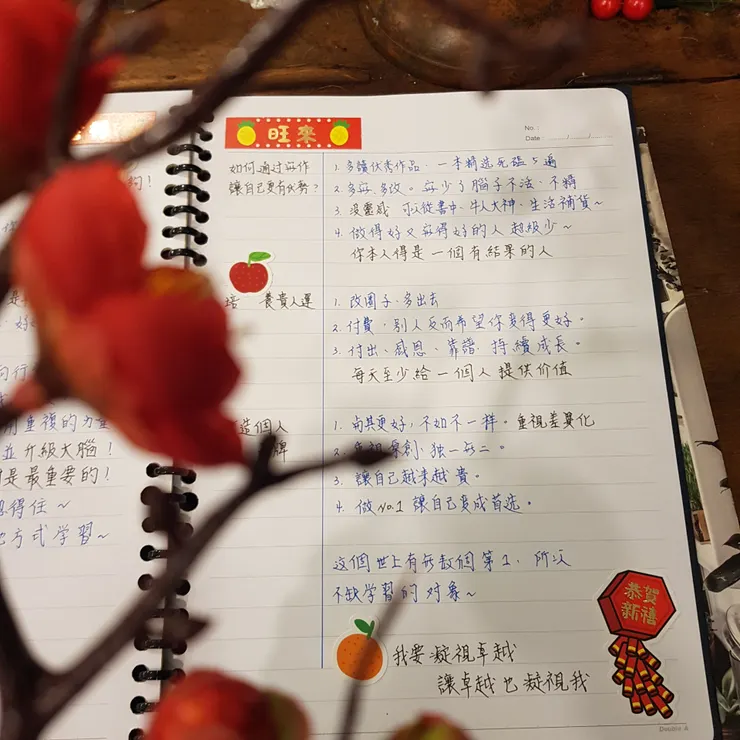 用重複的力量
並升級大腦!
是最重要的!
得住~
方式学習~
旺來
No.:
Date:
如何通过写作
讓自己更有优势?
1. 多讀优秀作品、一本精选死磕5遍
2. 多写、多改。写少了腦子不活、不精
3. 沒靈感 可以從書中、牛人大神、生活補貨~
4. 做得好又写得好的人 超級少~
你本人得是一個有結果的人
培 養貴人運
1. 改圈子、多出去
2. 付費、别人反而希望你变得更好。
3. 付出、感恩、靠譜、持續成長。
每天至少給一個人 提供价值
造個人
牌
1. 與其更好,不如不一样。重視差異化
2. 重視原創、独一无二。
3. 讓自己越来越貴。
4. 做No.1 讓自己变成首选。
这個世上有无数個第1,所以
不缺学習的对象~
我要凝視卓越
讓卓越也凝視我
恭賀
新禧
Double A